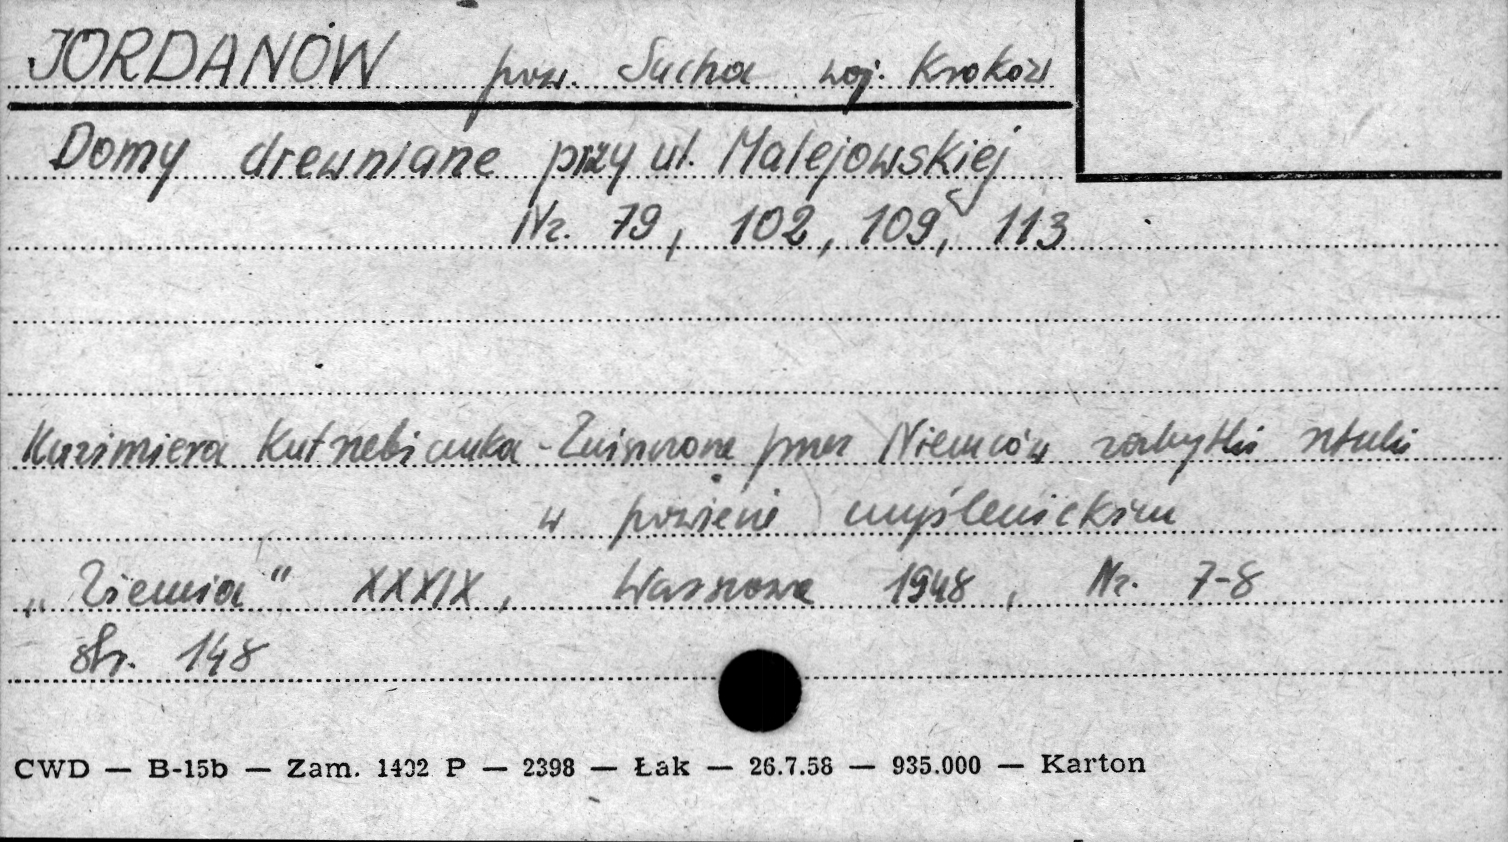 JORDANÓW pow. Sucha woj. Kraków
Domy drewniane przy ul. Malejowskiej
Nr. 79, 102, 109, 113
Kazimiera Kutrzebianka - Zniszczone przez Niemców zabytki sztuki
w powiecie myślenickim
„Ziemia" XXXIX, Warszawa 1948, Nr. 7-8
str. 148
CWD — B-15b — Zam. 1402 P — 2398 — Łak — 26.7.58 — 935.000 — Karton